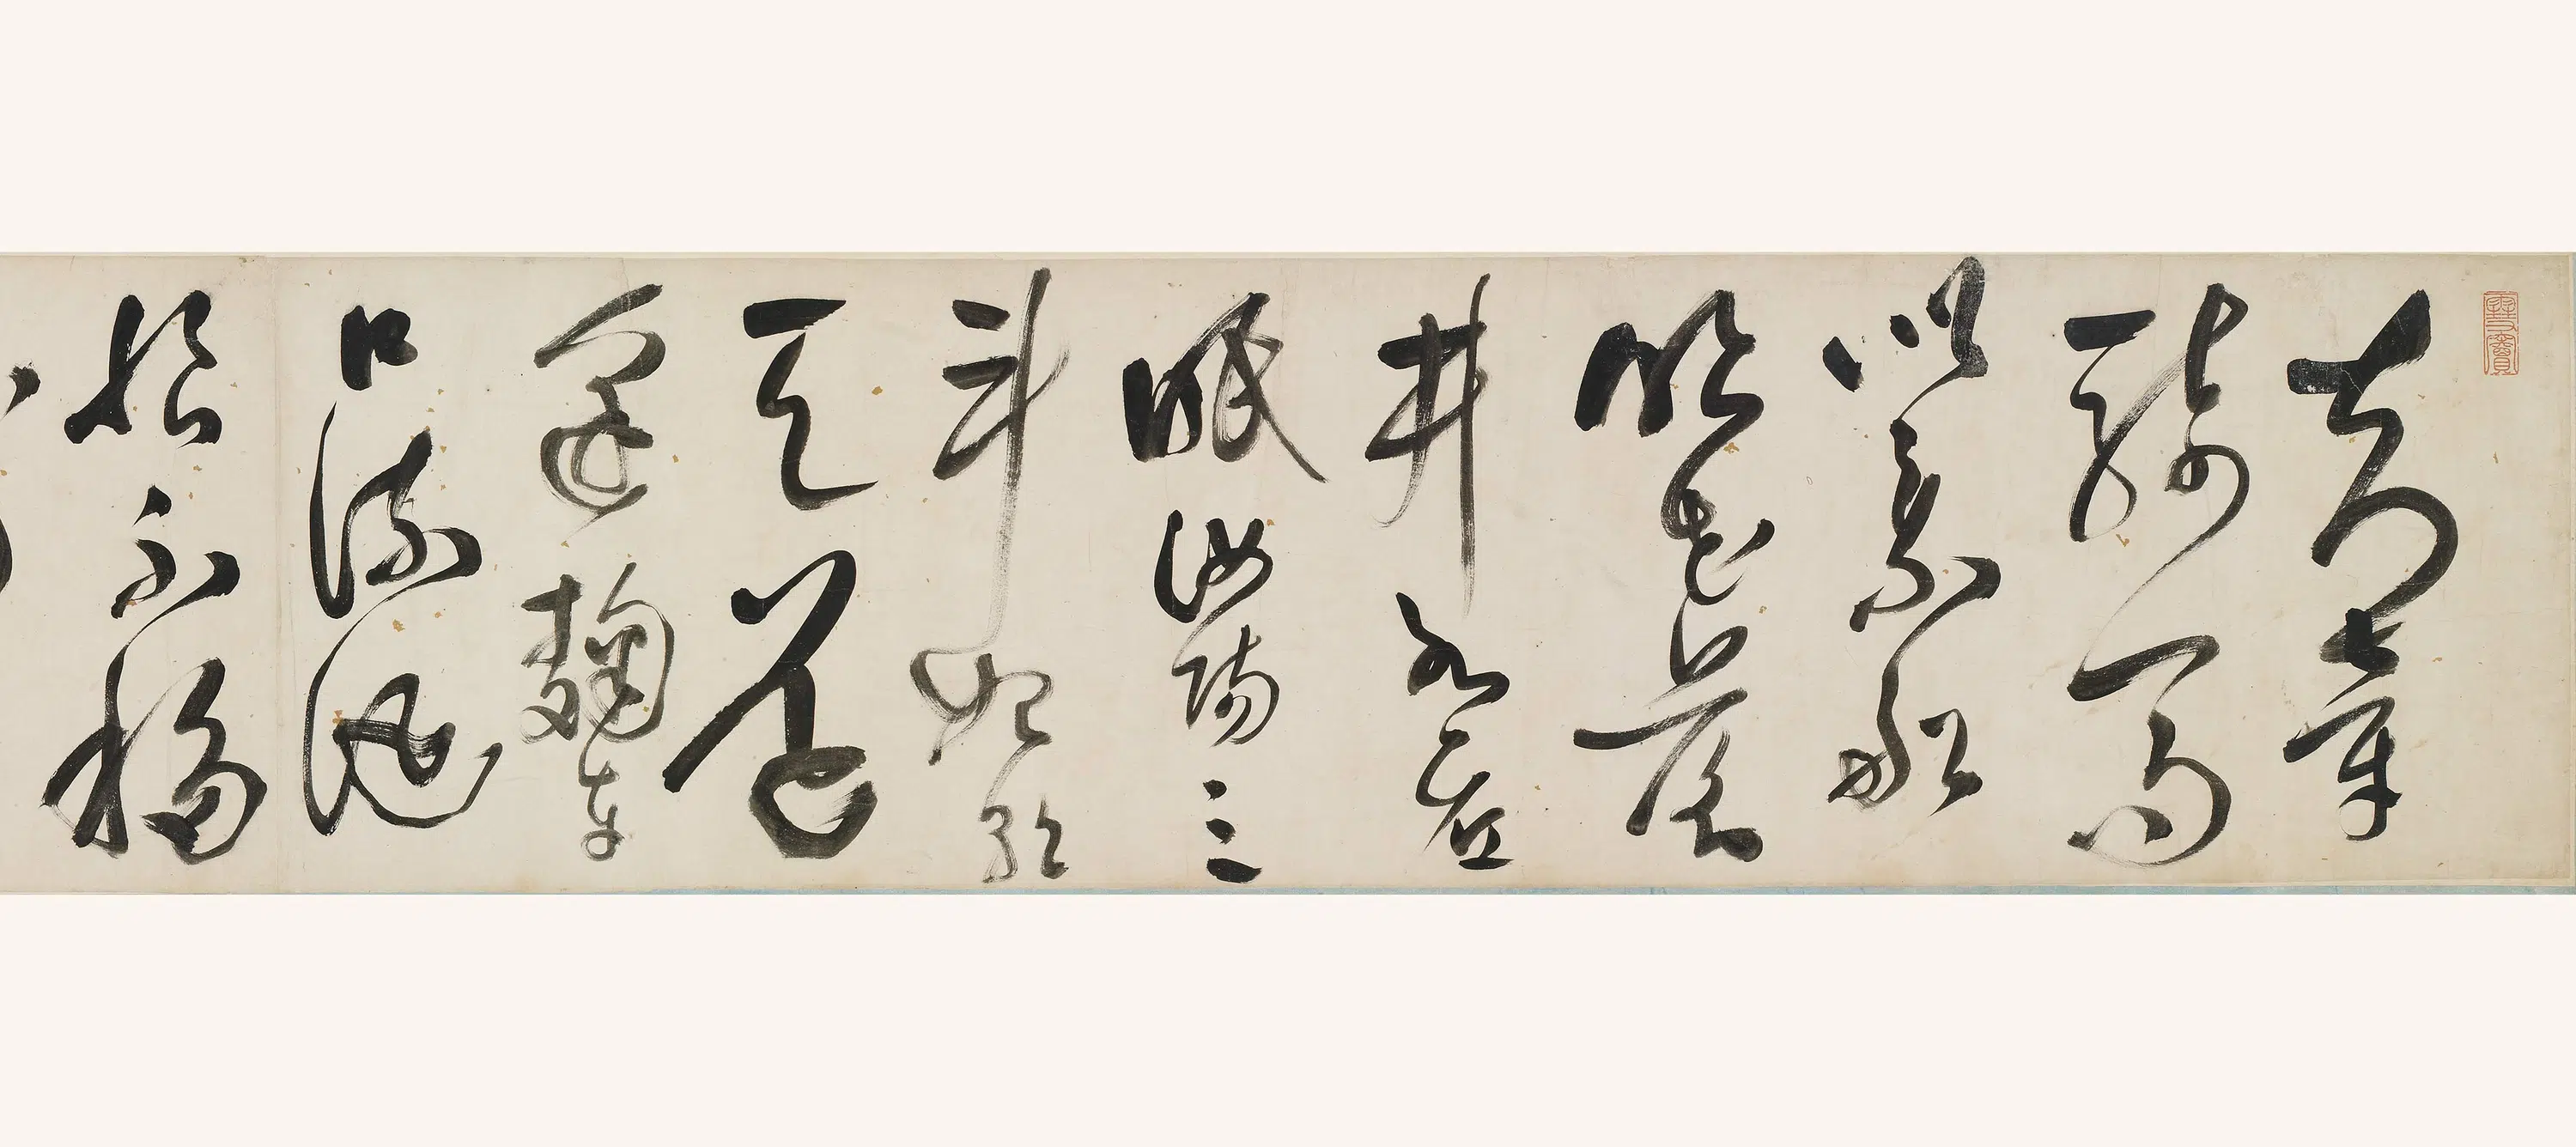 知章
騎馬
似乘船
眼花落
井水底
眠汝陽三
斗始朝
天道
逢麴車
口流涎
恨不移